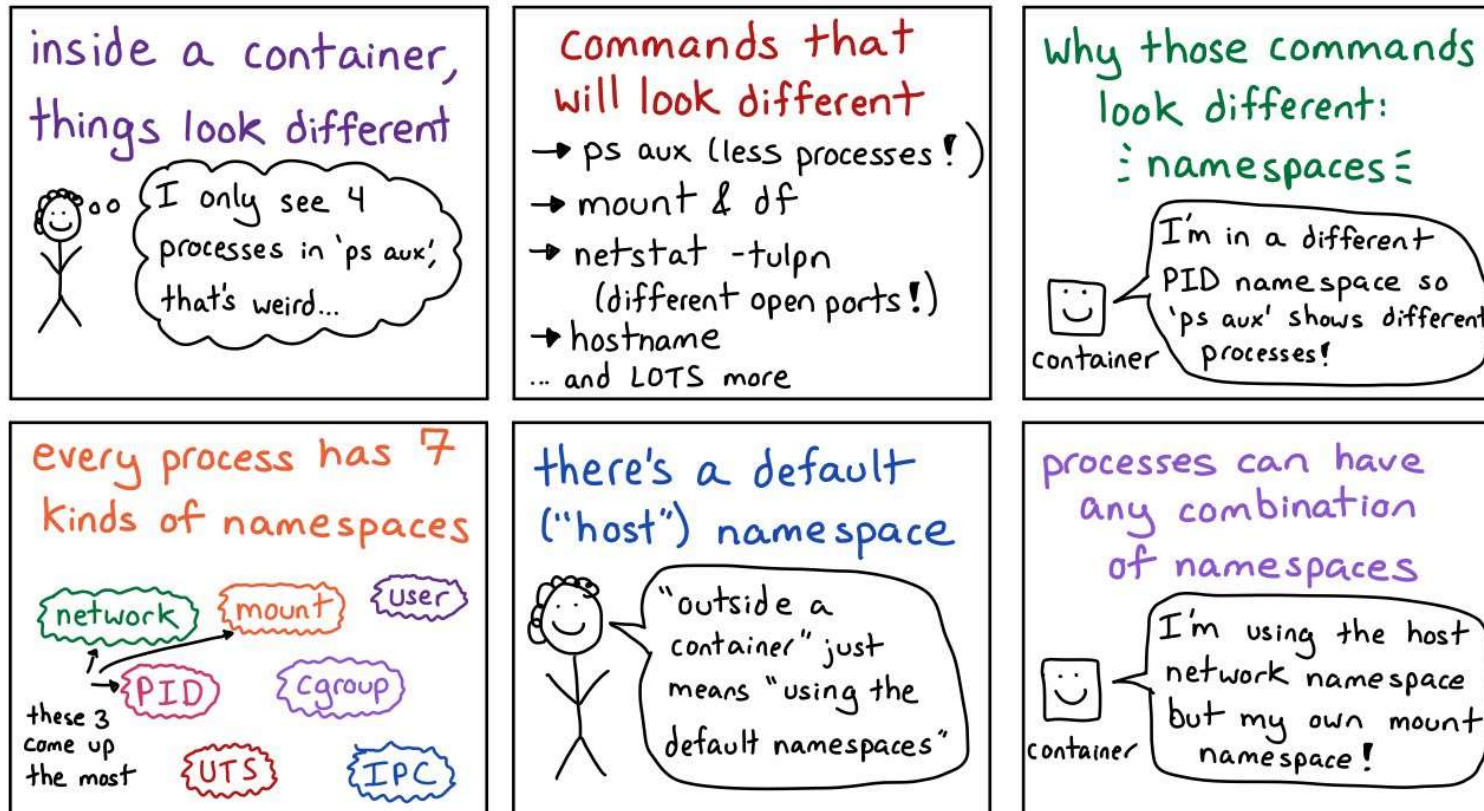 inside a container,
things look different
I only see 4
processes in 'ps aux',
that's weird...
commands that
will look different
→ ps aux (less processes!)
→ mount & df
→ netstat -tulpn
(different open ports!)
→ hostname
... and LOTS more
why those commands
look different:
namespaces
I'm in a different
PID namespace so
'ps aux' shows different
processes!
container
every process has 7
kinds of namespaces
network
mount
user
PID
cgroup
these 3
come up
the most
UTS
IPC
there's a default
("host") namespace
"outside a
container" just
means "using the
default namespaces"
processes can have
any combination
of namespaces
I'm using the host
network namespace
but my own mount
namespace!
container